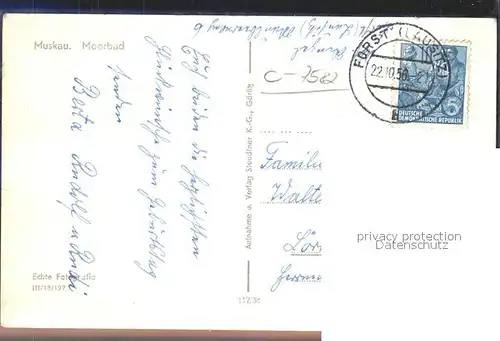 Muskau. Moorbad
Euch beiden die herzlichsten
Glückwünsche zum Geburtstag
senden
Berta Rudolf u. Rudi
Echte Fotografie
III/18/197
Aufnahme u. Verlag Steudtner K.-G., Görlitz
C-7582
FORST (LAUSITZ)
22.10.56
DEUTSCHE
DEMOKRATISCHE REPUBLIK
Familie
Walte
Lör
privacy protection
Datenschutz